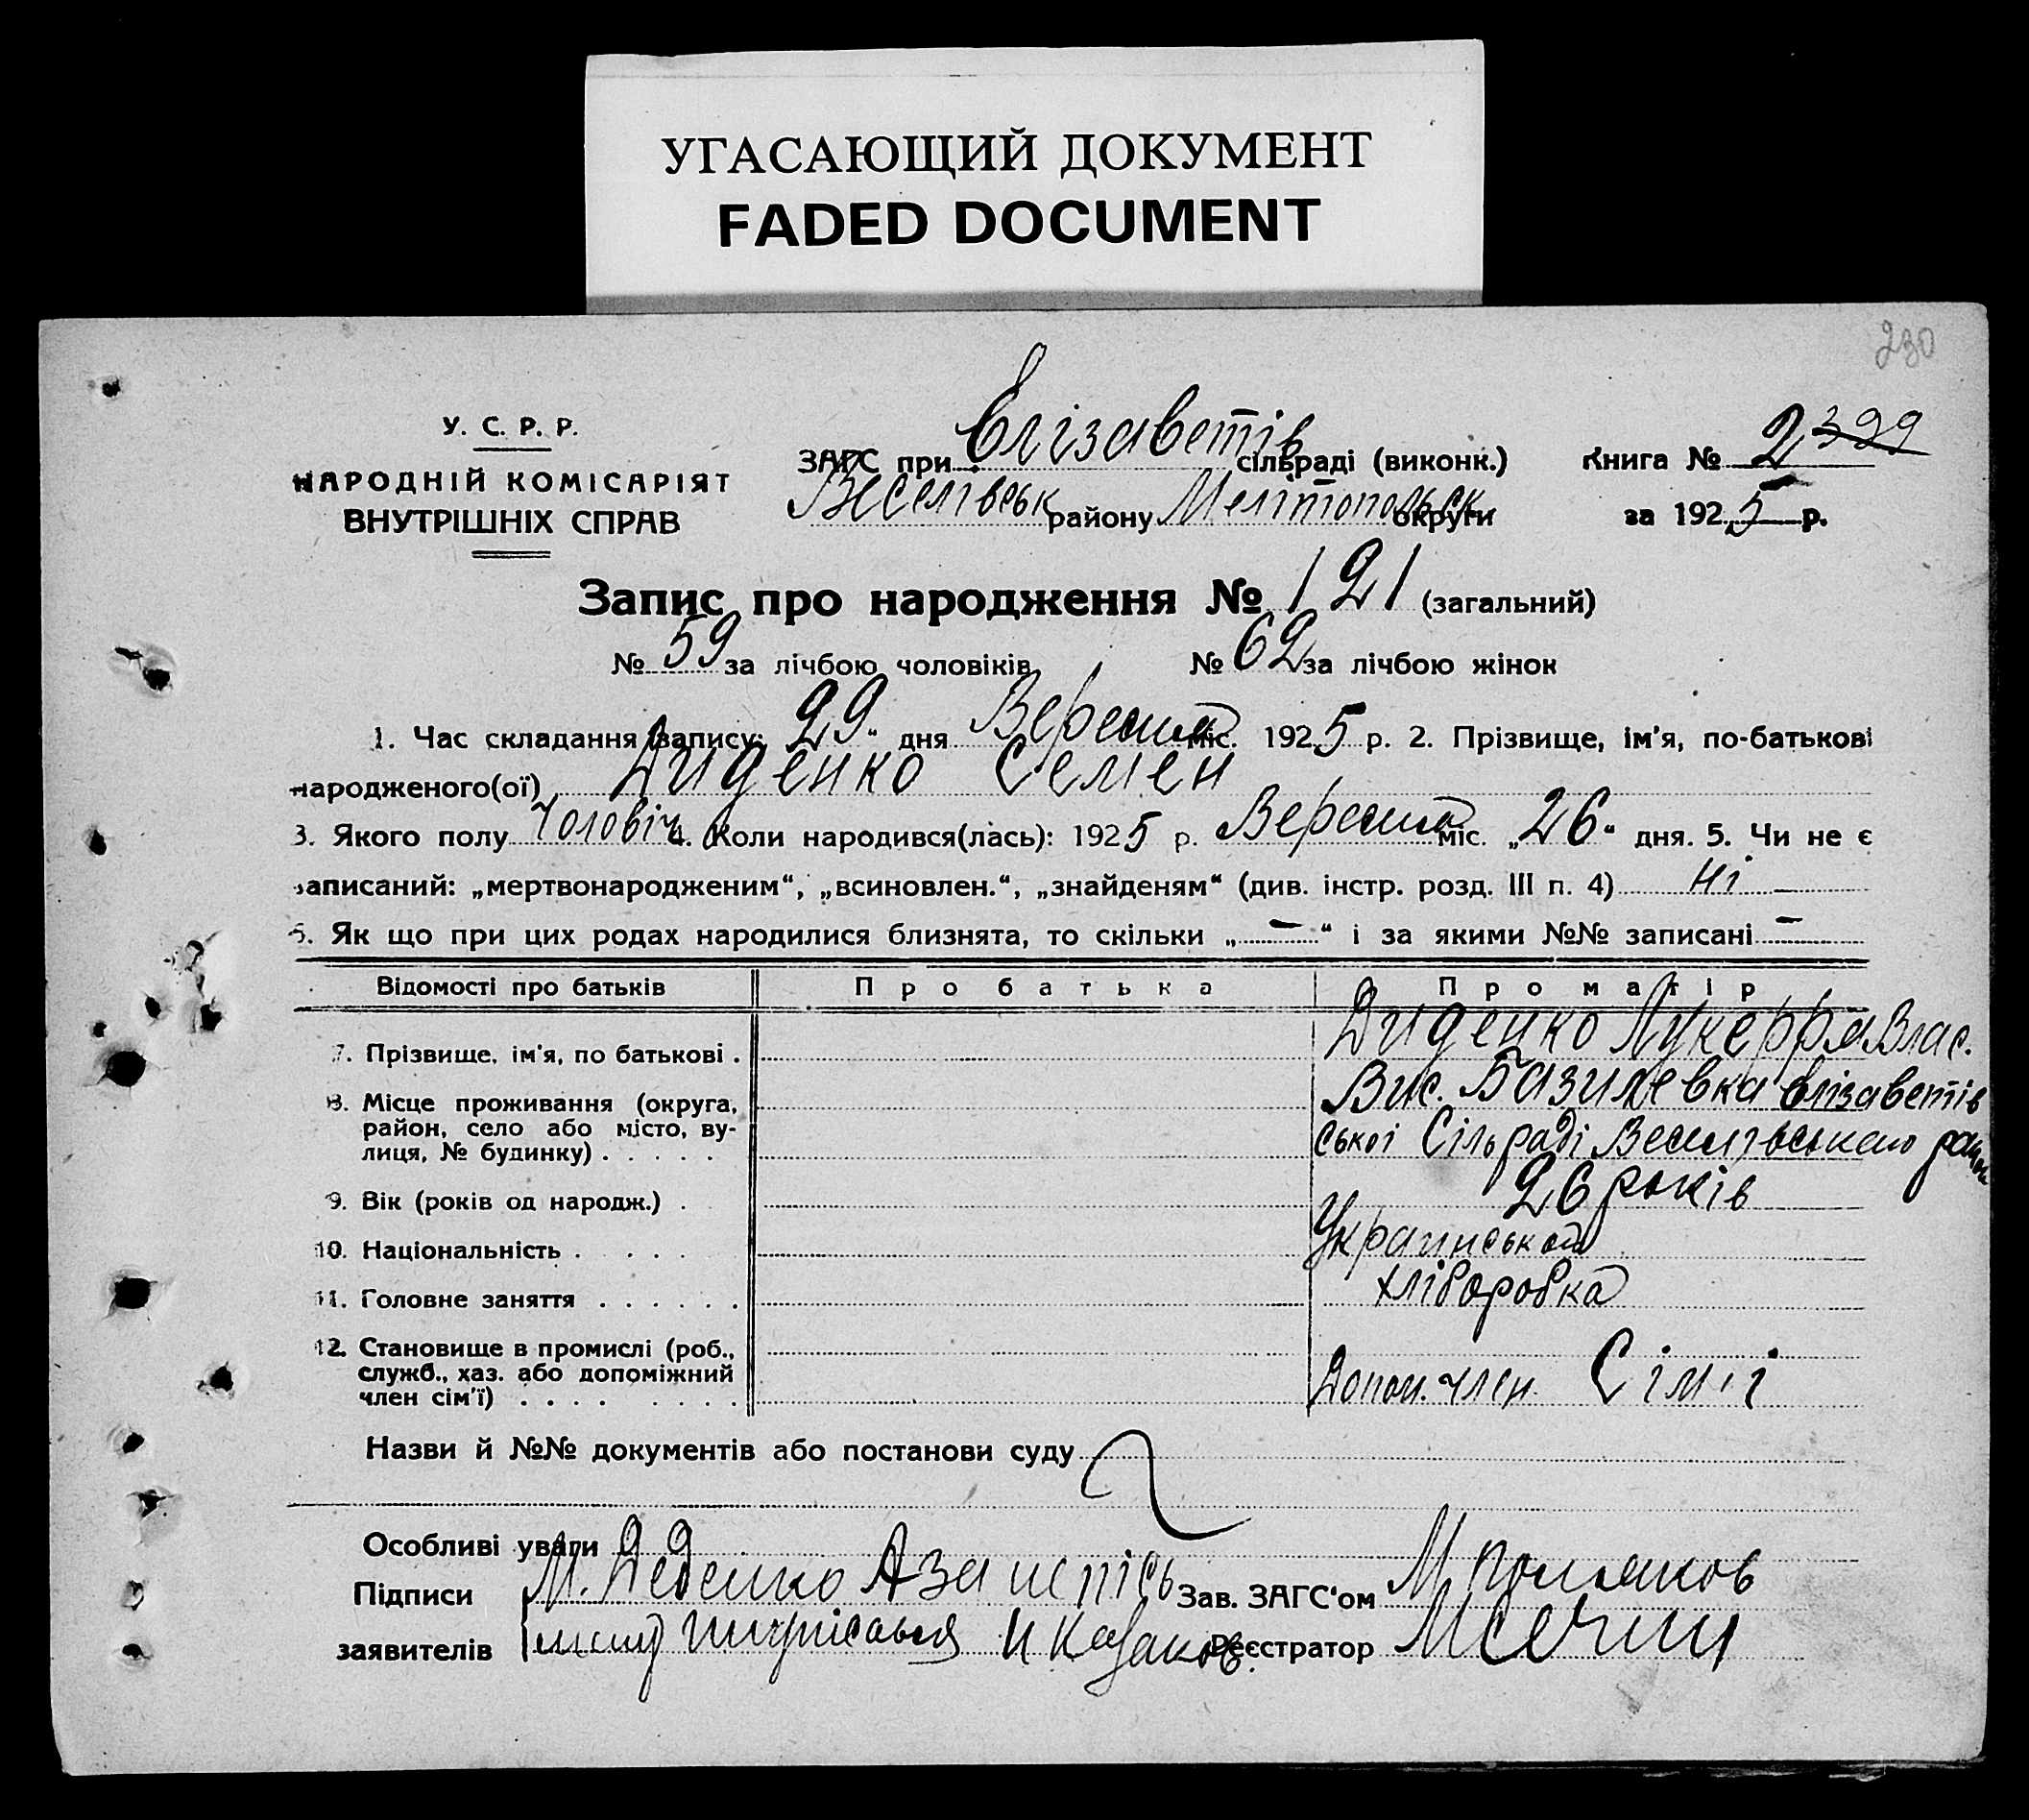 УГАСАЮЩИЙ ДОКУМЕНТ
FADED DOCUMENT
230
У. С. Р. Р.
НАРОДНІЙ КОМІСАРІЯТ
ВНУТРІШНІХ СПРАВ
ЗАГС при Єлізаветів сільраді (виконк.)
Веселівськ району Мелітопольск. округи
Книга № 2 399
за 1925 р.
Запис про народження № 121 (загальний)
№ 59 за лічбою чоловіків № 62 за лічбою жінок
1. Час складання запису: 29 " дня Вересня міс. 1925 р. 2. Прізвище, ім'я, по-батькові
народженого(ої) Диденко Семен
3. Якого полу Чоловіч 4. Коли народився(лась): 1925 р. Вересня міс. „26" дня. 5. Чи не є
записаний: „мертвонародженим“, „всиновлен.“, „знайденям“ (див. інстр. розд. III п. 4) Ні
6. Як що при цих родах народилися близнята, то скільки „ — “ і за якими №№ записані —
Відомості про батьків Про батька Про матір
7. Прізвище, ім'я, по батькові . Диденко Лукерря Влас.
8. Місце проживання (округа, район, село або місто, вулиця, № будинку) . . . . . Вис. Базилевка Єлізаветів
ської Сільраді Веселівського район
9. Вік (років од народж.) . 26 років
10. Національність . . . . Украинська
11. Головне заняття . . . . . . хліборобка
12. Становище в промислі (роб., служб., хаз. або допоміжний член сім'ї) . . . . . . . . Допом. член Сімїі
Назви й №№ документів або постанови суду
Особливі уваги
Підписи М. Деденко А за
Зав. ЗАГС'ом М Поляков
заявителів И Казаков.
Реєстратор